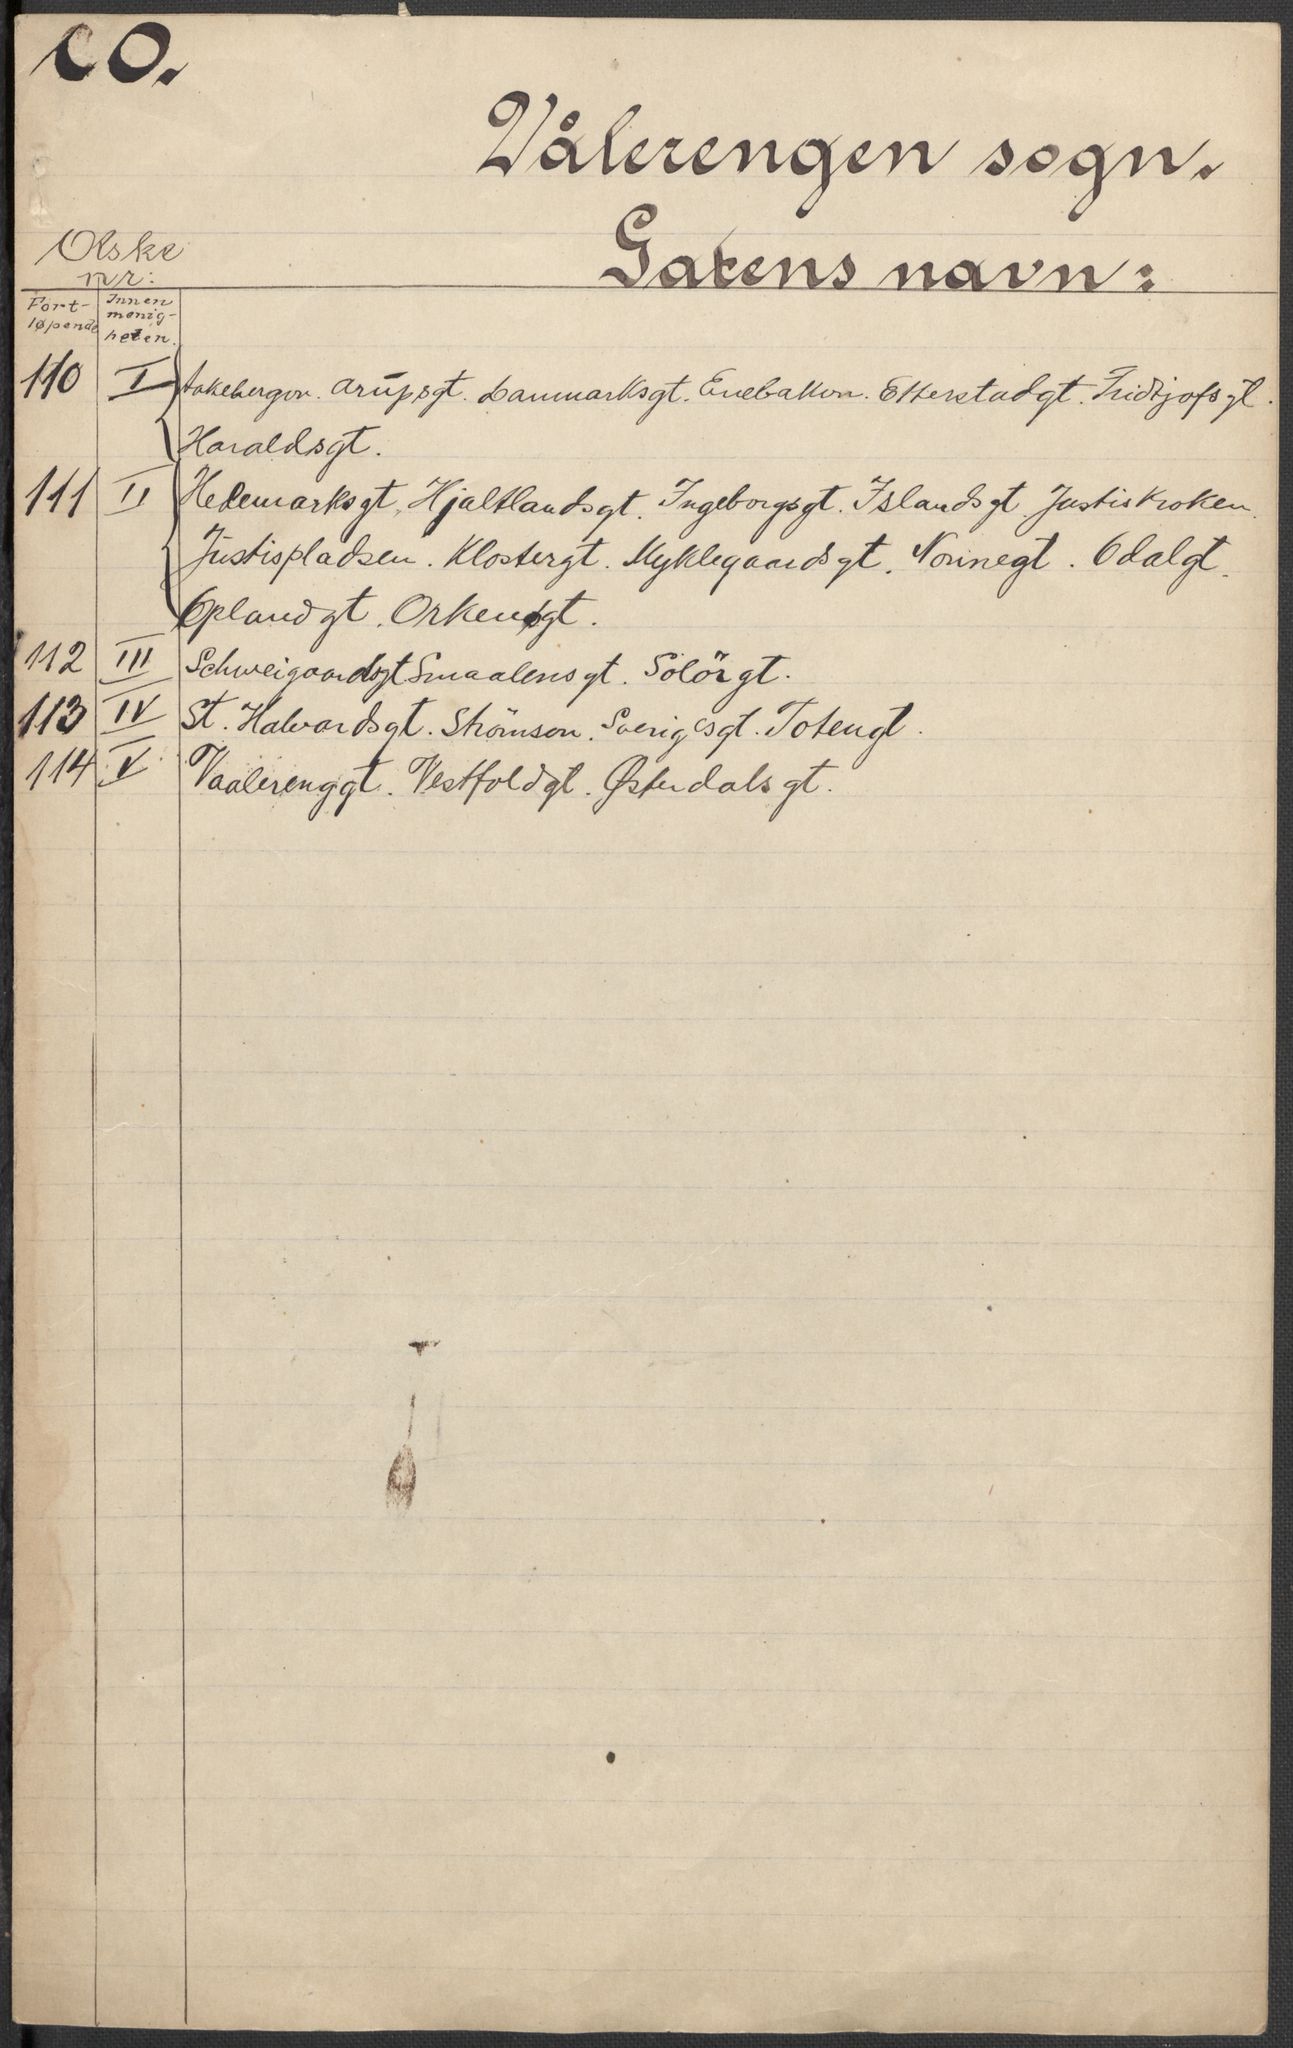 20.
Vålerengen sogn.
Gatens navn:
Øske
nr:
Fort-
løpende
Innen
menig-
heten.
110 I Aakebergvn. Arupsgt. Danmarksgt. Enebakvn. Etterstadgt. Fridtjofsgt.
Haraldsgt.
111 II Hedemarksgt, Hjaltlandsgt. Ingeborgsgt. Islandsgt. Justiskroken.
Justispladsen. Klostergt. Myklegaardsgt. Nonnegt. Odalgt.
Oplandgt. Orkenøgt.
112 III Schweigaardsgt Smaalensgt. Solørgt.
113 IV St. Halvardsgt. Strömsvn. Sverigesgt. Totengt.
114 V Vaalerenggt. Vestfoldgt. Østerdalsgt.